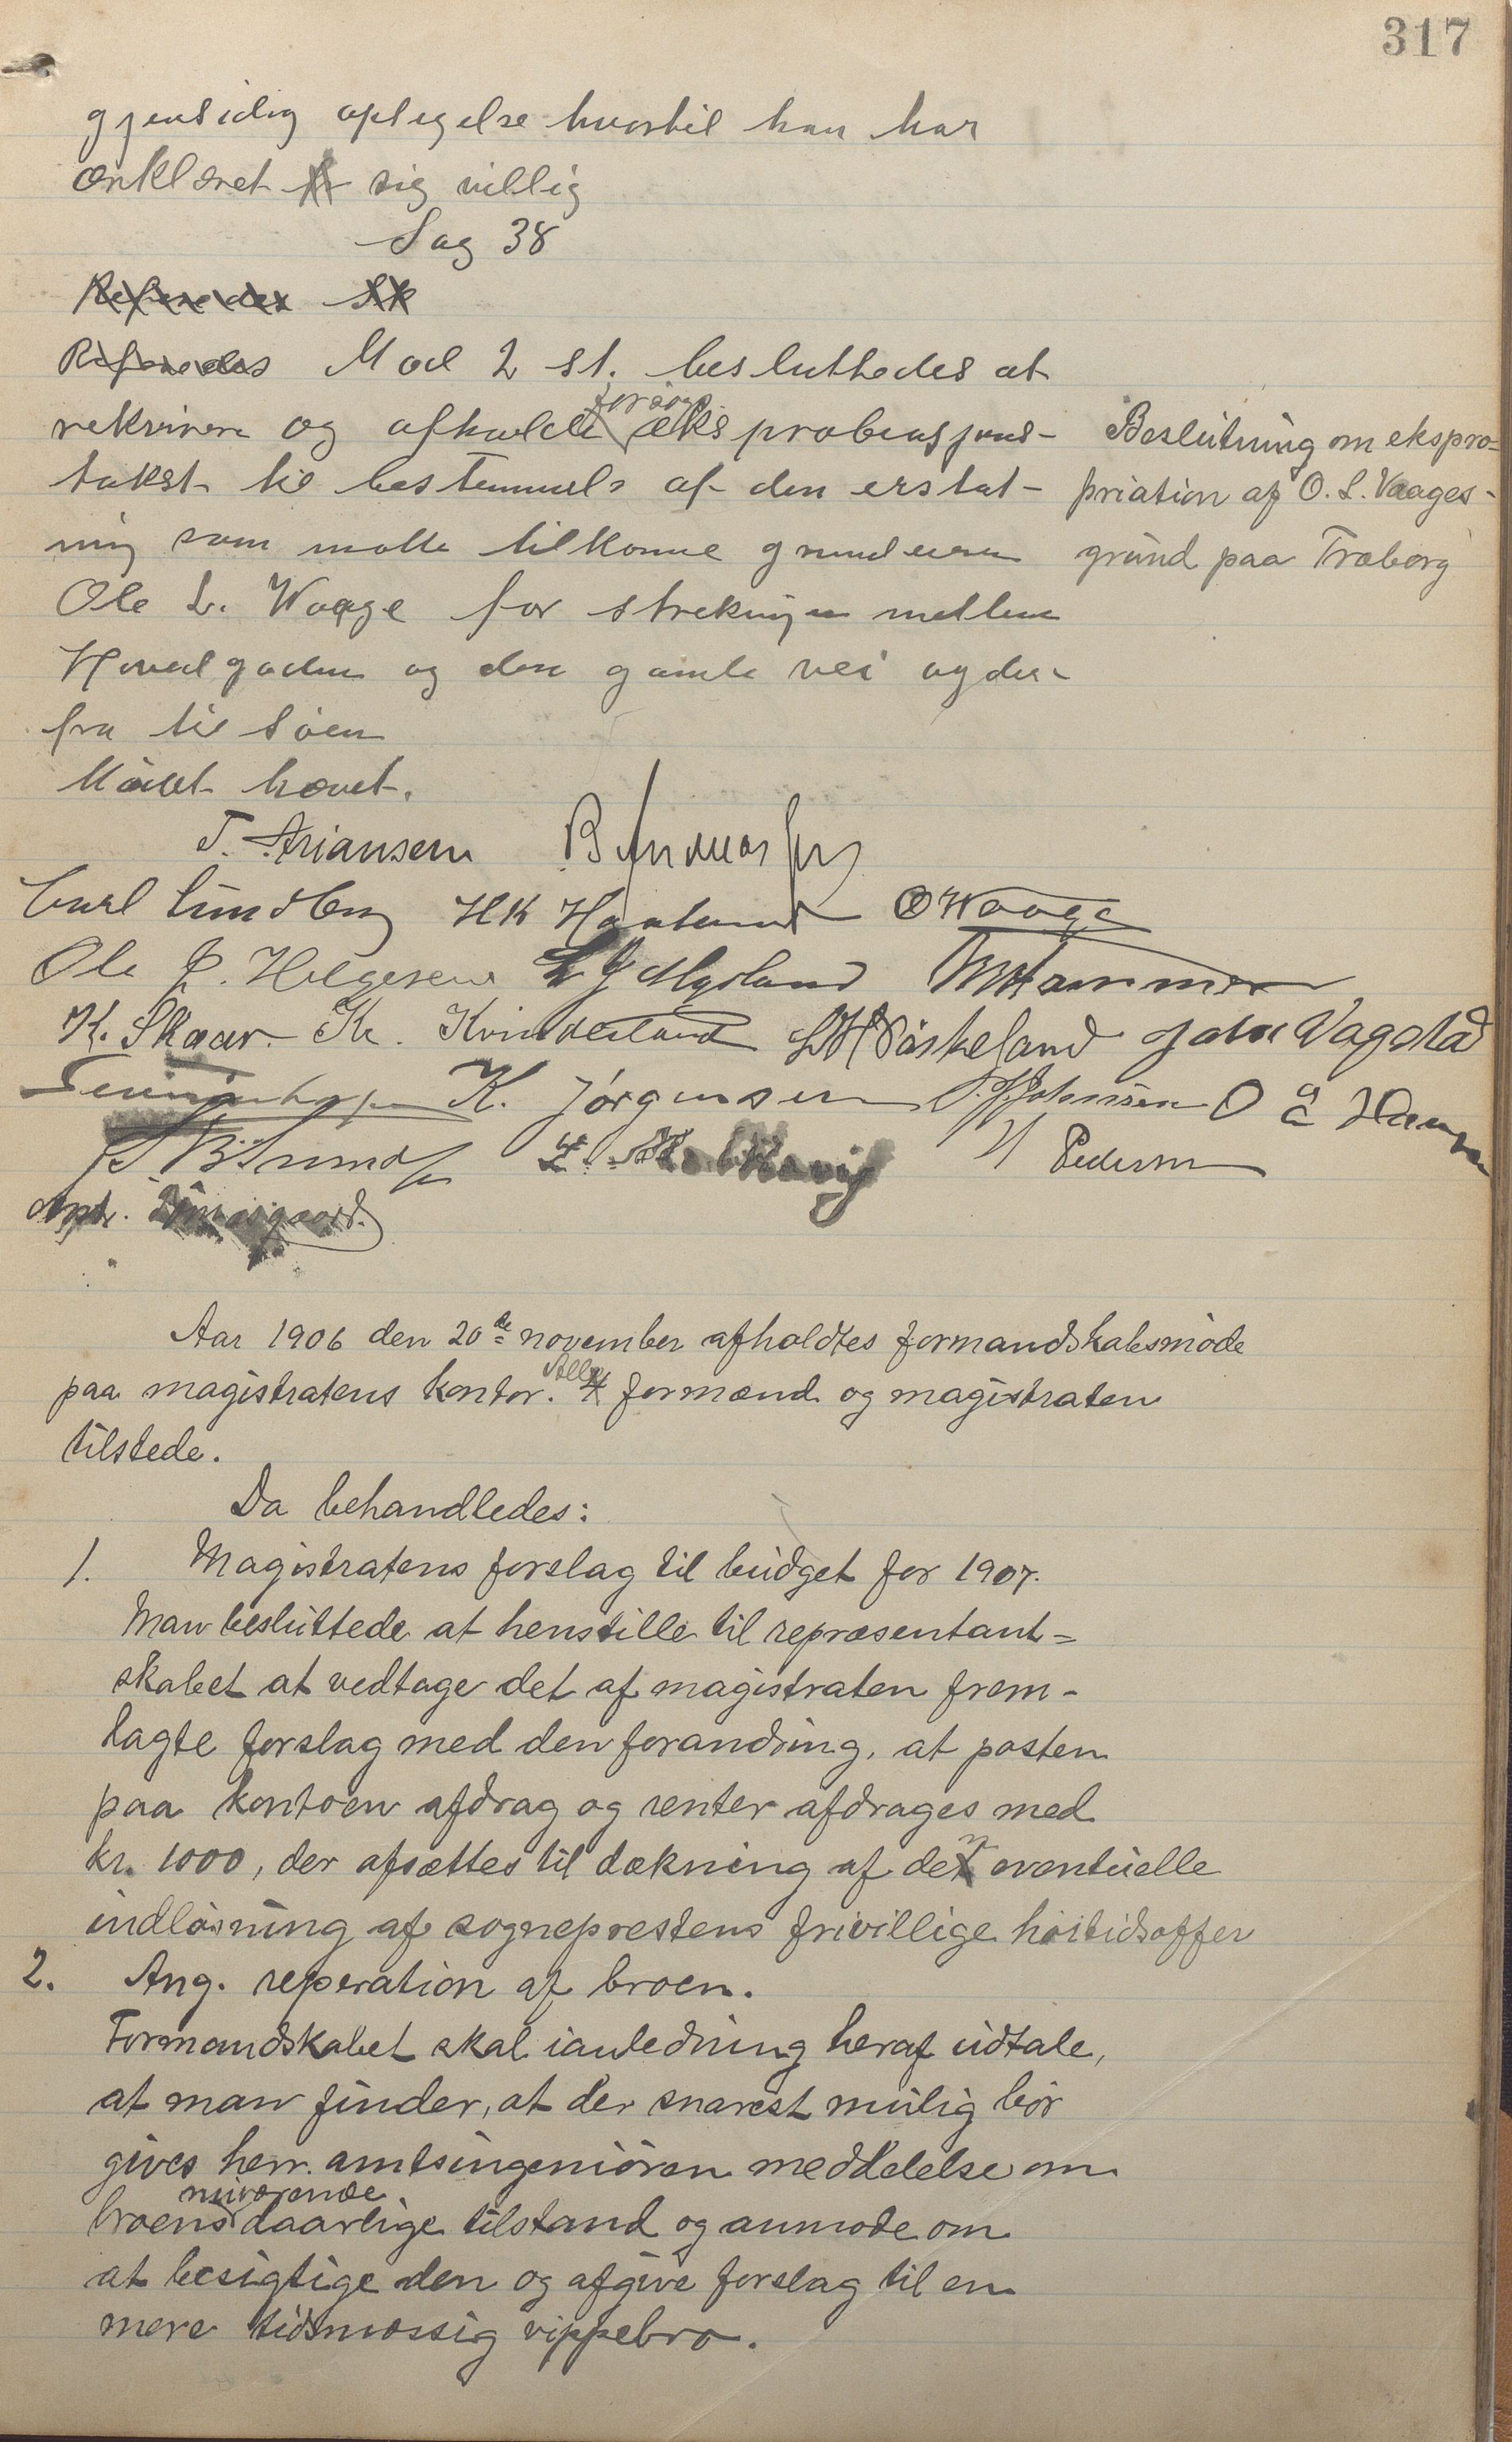 317
gjensidig opsigelse hvortil han har
ærklæret sig villig
Sag 38
Refereredes Sk
Refereredes Mod 2 st. besluttedes at
rekvirere og afholde forsøgs ekspropriasjons-
takst til bestemmelse af den erstat-
ning som motte tilkomme grundeieren
Ole L. Waage for strekningen mellem
Hovedgaden og den gamle vei og der-
fra til søen
Mødet hævet.
Beslutning om ekspro=
priation af O. L. Vaages-
grund paa Træborg
T. Ariansen
Carl Lundberg HK Haaland O Waage
Ole J. Helgesen L J Mysland M Hammer
K. Skaar. Kr. Kvindesland L H Øiskeland John Vagstad
K. Jørgensen P. J. Johnsen O Å Hansen
H Pedersen
Aar 1906 den 20de november afholdtes formandskabsmøde
paa magistratens kontor. Alle 4 formænd og magistraten
tilstede.
Da behandledes:
1. Magistratens forslag til budget for 1907.
Man besluttede at henstille til repræsentant=
skabet at vedtage det af magistraten frem-
lagte forslag med den forandring, at posten
paa kontoen afdrag og renter afdrages med
kr. 1000, der afsættes til dækning af den eventuelle
indløsning af sogneprestens frivillige høitidsoffer
2. Ang. reperation af broen.
Formandskabet skal ianledning heraf udtale,
at man finder, at der snarest mulig bør
gives herr. amtsingeniøren meddelelse om
broens nuværende daarlige tilstand og anmode om
at besigtige den og afgive forslag til en
mere tidsmæssig vippebro.